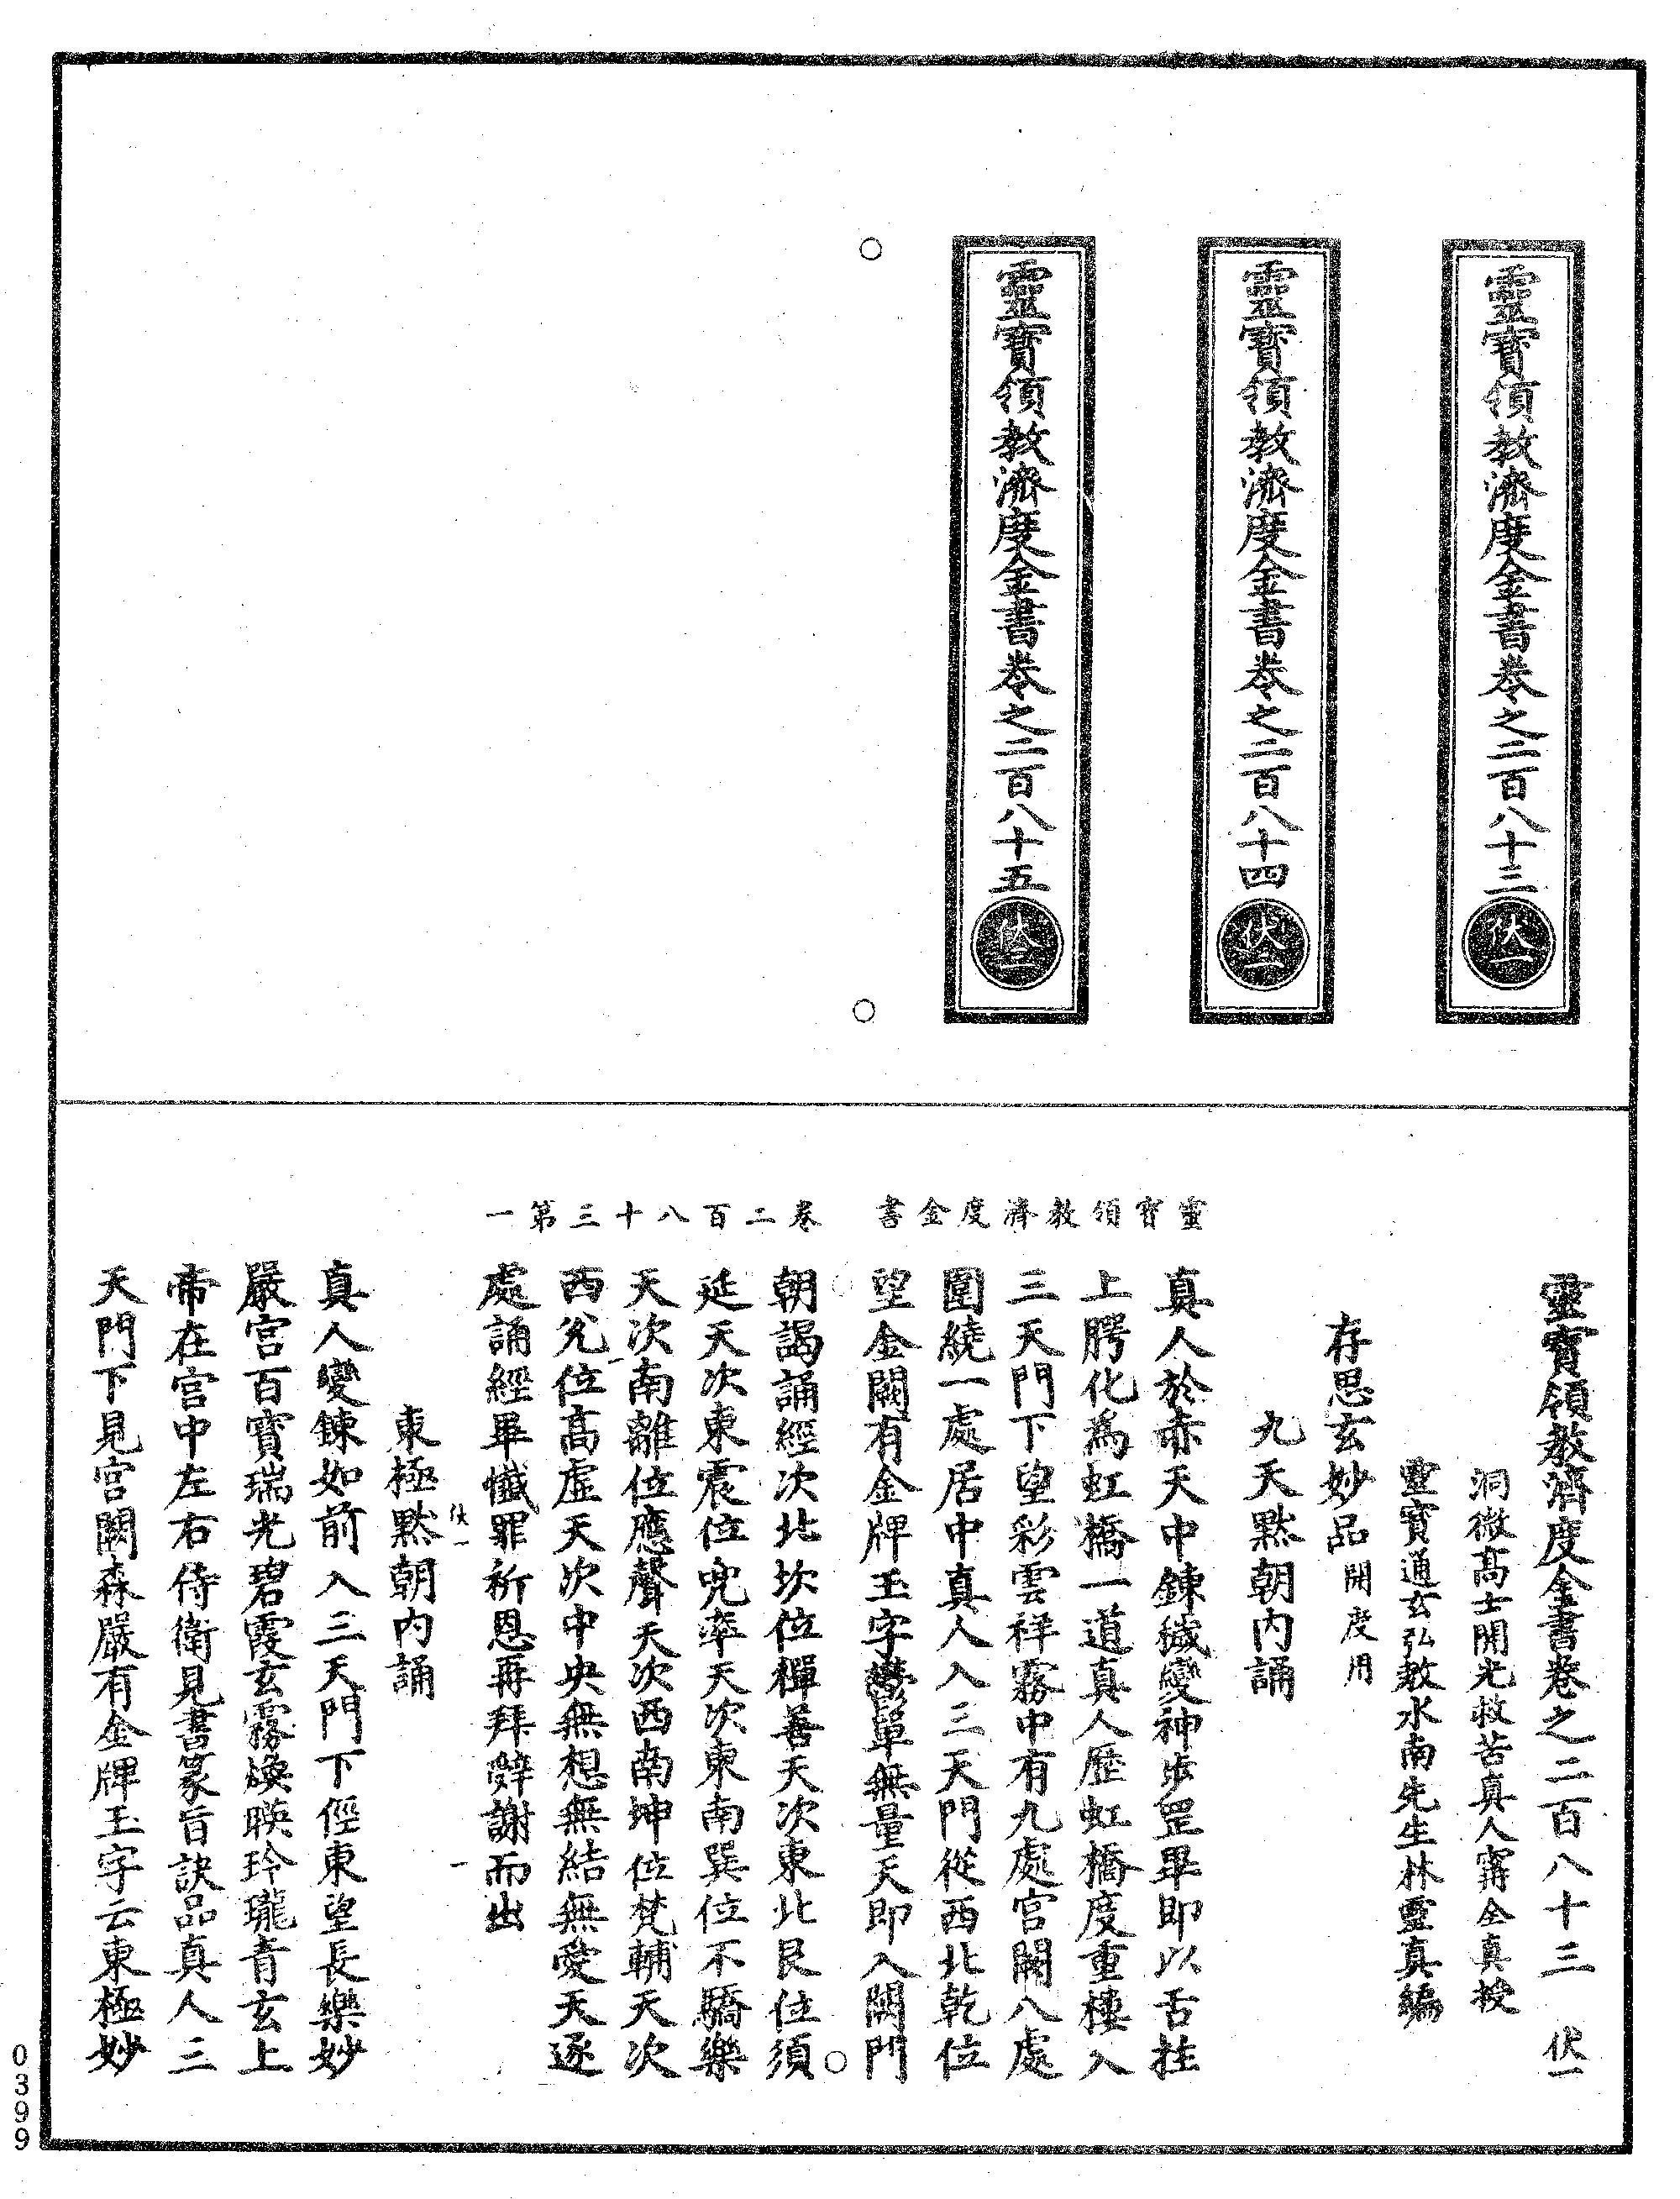 靈寶領教濟度金書卷之二百八十三
伏一
靈寶領教濟度金書卷之二百八十四
伏二
靈寶領教濟度金書卷之二百八十五
伏三
靈寶領教濟度金書 卷二百八十三第一
靈寶領教濟度金書卷之二百八十三 伏一
洞微高士開光救苦真人甯全真授
靈寶通玄弘教水南先生林靈真編
存思玄妙品開度用
九天默朝內誦
真人於赤天中鍊穢變神步罡畢即以舌拄
上腭化為虹橋一道真人歷虹橋度重樓入
三天門下望彩雲祥霧中有九處宮闕八處
圍繞一處居中真人入三天門從西北乾位
望金闕有金牌玉字鬱單無量天即入闕門
朝謁誦經次北坎位禪善天次東北艮位須
延天次東震位兜率天次東南巽位不驕樂
天次南離位應聲天次西南坤位梵輔天次
西兌位高虛天次中央無想無結無愛天逐
處誦經畢懺罪祈恩再拜辭謝而出
伏一 一
東極默朝內誦
真人變鍊如前入三天門下徑東望長樂妙
嚴宮百寶瑞光碧霞玄霧煥暎玲瓏青玄上
帝在宮中左右侍衛見書篆旨訣品真人三
天門下見宮闕森嚴有金牌玉字云東極妙
0399